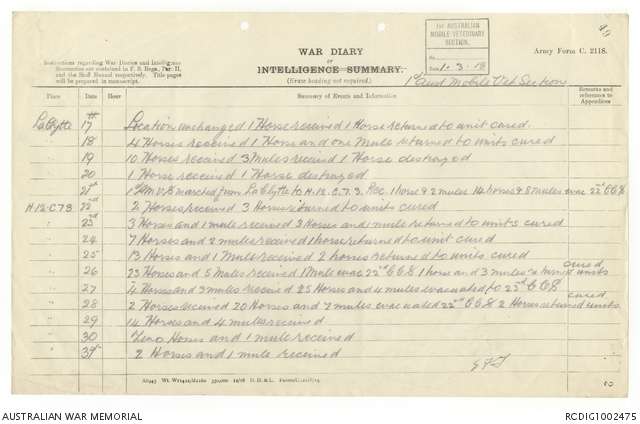 1st AUSTRALIAN
MOBILE VETERINARY
SECTION.
No.
Date 1.3.18
Army Form C. 2118.
WAR DIARY
or
INTELLIGENCE SUMMARY.
(Erase heading not required.)
1st Aust Mobile Vet Section
Instructions regarding War Diaries and Intelligence
Summaries are contained in F. S. Regs., Part II.
and the Staff Manual respectively. Title pages
will be prepared in manuscript.
Place Date Hour Summary of Events and Information Remarks and references to Appendices
La Clytte 17th Location unchanged 1 Horse received 1 Horse returned to unit cured.
" 18 4 Horses received 1 Horse and one Mule returned to units cured
" 19 10 Horses received 3 Mules received 1 Horse destroyed
" 20 1 Horse received 1 Horse destroyed
" 21st marched from La Clytte to H.12.C.7.3. Rec 1 horse & 2 mules 14 horses & 8 mules evac 22nd
H.12.C.7.3 22nd 2 Horses received 3 Horses returned to unit cured
" 23rd 3 Horses and 1 mule received 3 Horses and 1 mule returned to units cured
" 24 7 Horses and 2 mules received 1 horse returned to unit cured
" 25 13 Horses and 1 Mule received 2 horses returned to units cured
" 26 23 Horses and 5 Mules received 1 Mule evac 22nd 1 horse and 3 mules returned units cured
" 27 Horses and 3 mules received 25 Horses and 4 mules evacuated to
" 28 2 Horses received 20 Horses and 7 mules evacuated 22nd 2 Horses returned units cured
" 29 14 Horses and 4 mules received
" 30 Two Horses and 1 mule received
" 31st 2 Horses and 1 mule received
AUSTRALIAN WAR MEMORIAL
RCDIG1002475